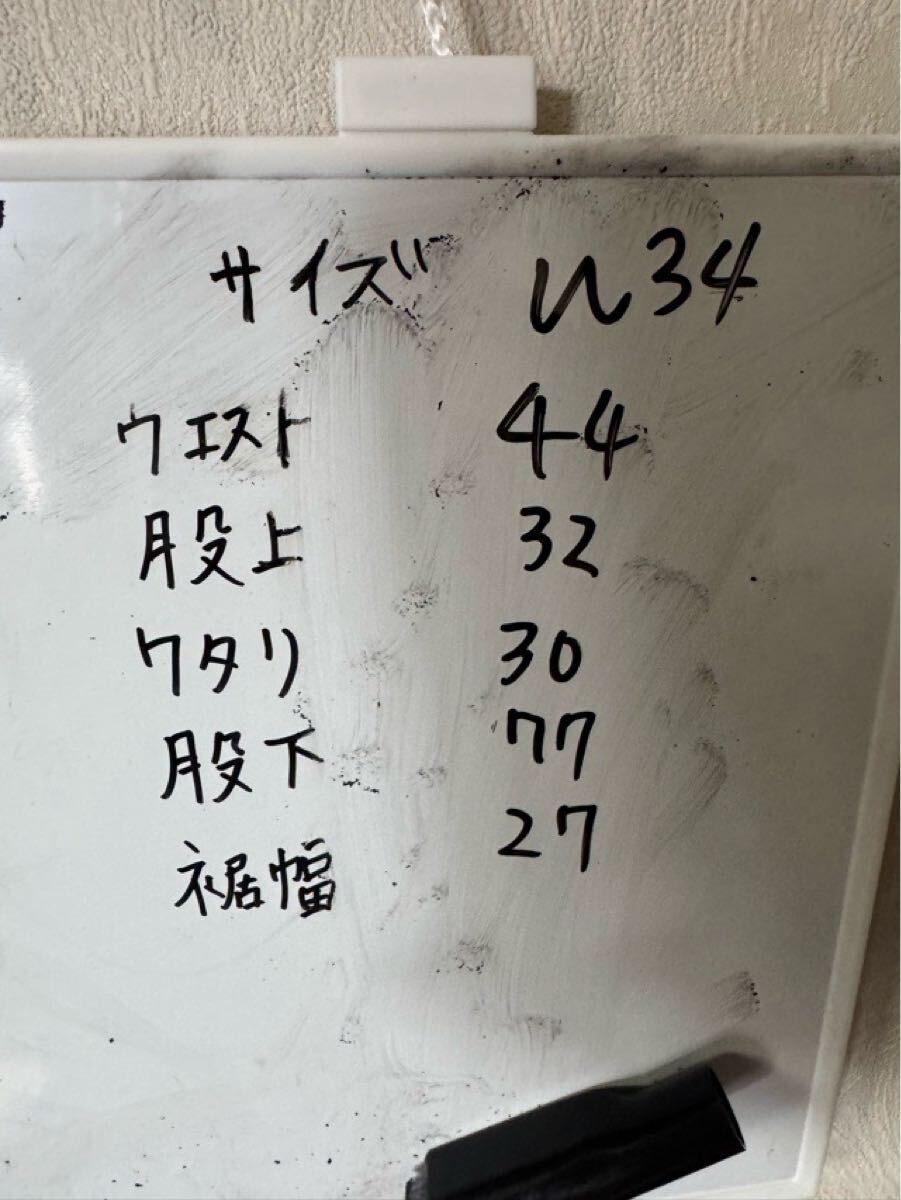 サイズ W34
ウエスト 44
股上 32
ワタリ 30
股下 77
裾幅 27